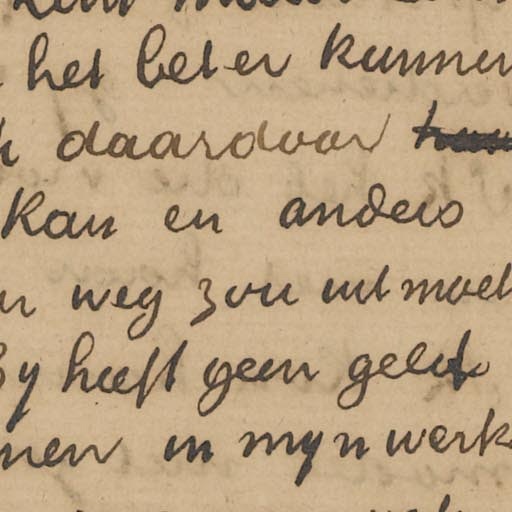 het beter kunnen
daardoor
kan en anders
weg zou uit moet
hy heeft geen geld
men in myn werk